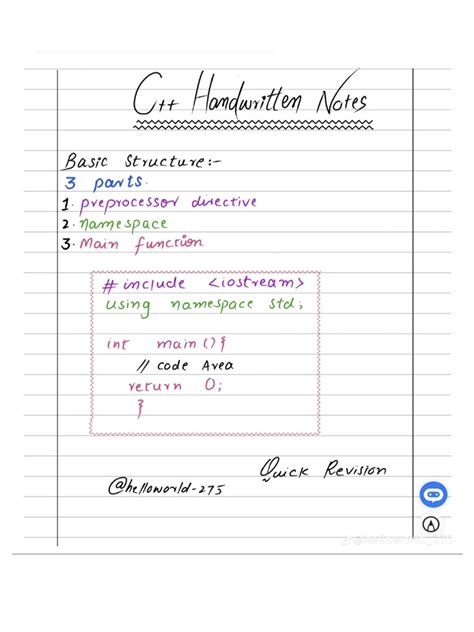 C++ Handwritten Notes
Basic Structure:-
3 parts.
1. preprocessor directive
2. namespace
3. Main function
# include <iostream>
using namespace std;
int main () {
// code Area
return 0;
}
Quick Revision
@helloworld-275